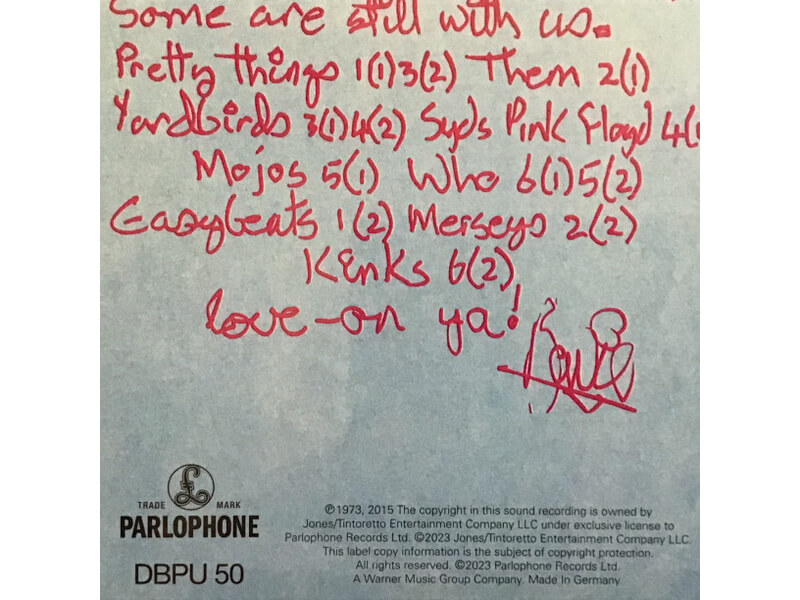 Some are still with us.
Pretty things 1(1)3(2) Them 2(1)
Yardbirds 3(1)4(2) Syds Pink Floyd 4(1
Mojos 5(1) Who 6(1)5(2)
Easybeats 1(2) Merseys 2(2)
Kinks 6(2)
love-on ya!
Bowie
£
TRADE MARK
PARLOPHONE
DBPU 50
℗1973, 2015 The copyright in this sound recording is owned by
Jones/Tintoretto Entertainment Company LLC under exclusive license to
Parlophone Records Ltd. ©2023 Jones/Tintoretto Entertainment Company LLC.
This label copy information is the subject of copyright protection.
All rights reserved. ©2023 Parlophone Records Ltd.
A Warner Music Group Company. Made In Germany